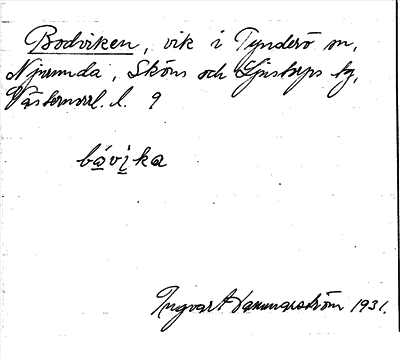 Bodviken, vik i Tynderö sn,
Njurunda, Sköns och Ljustorps tg,
Västernorrl. l. 9
båvika
Ingvar Hammarström 1931.